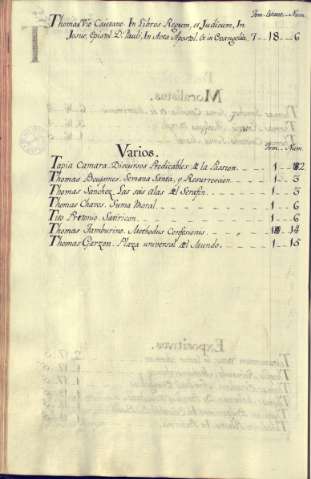 Tom. Estant. Num.
T
Thomas Vio Caietano. In Libros Regum, et Judicum, In
Josue, Epist. D. Pauli, In Acta Apostol. & in Evangelia. 7 - 18 - 6
Varios.
Tom. Num.
Tapia Camara. Discursos Predicables de la Passion. 1 - 12
Thomas Semana Santa, y Resurreccion 1 - 3
Thomas Sanchez. Las seis Alas del Serafin. 1 - 3
Thomas Chaves. Suma Moral. 1 - 6
Tito Petronio. Satiricon. 1 - 6
Thomas Tamburino. Methodus Confesionis 14
Thomas Garzon. Plaza universal del Mundo. 1 - 15